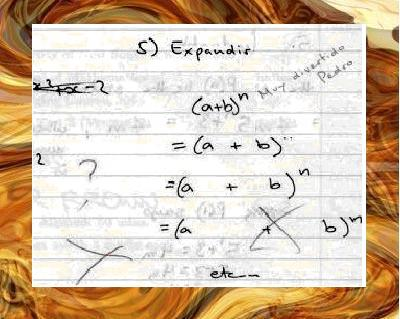 5) Expandir
x²+x-2
(a+b)ⁿ Muy divertido Pedro
= (a + b)ⁿ
2 ?
=(a + b)ⁿ
=(a + b)ⁿ
etc...